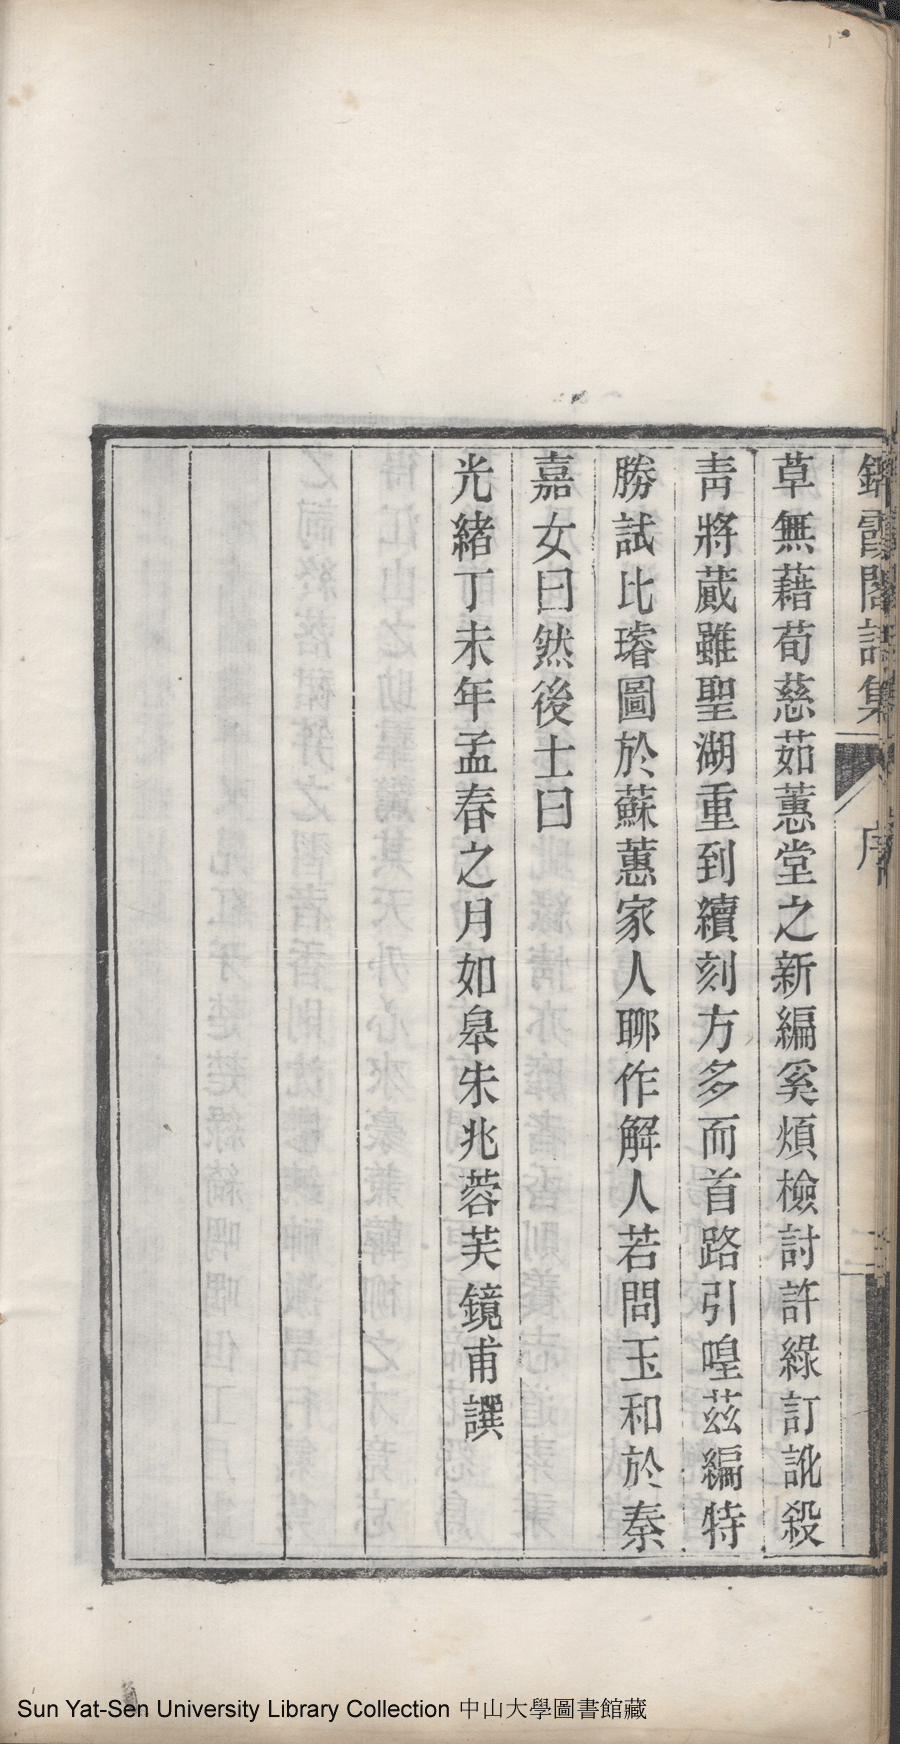 霞閣詩集
序
草無藉荀慈茹蕙堂之新編奚煩檢討許綠訂訛殺
青將蕆雖聖湖重到續刻方多而首路引喤茲編特
勝試比璿圖於蘇蕙家人聊作解人若問玉和於秦
嘉女曰然後士曰
光緒丁未年孟春之月如皋朱兆蓉芙鏡甫譔
Sun Yat-Sen University Library Collection 中山大學圖書館藏